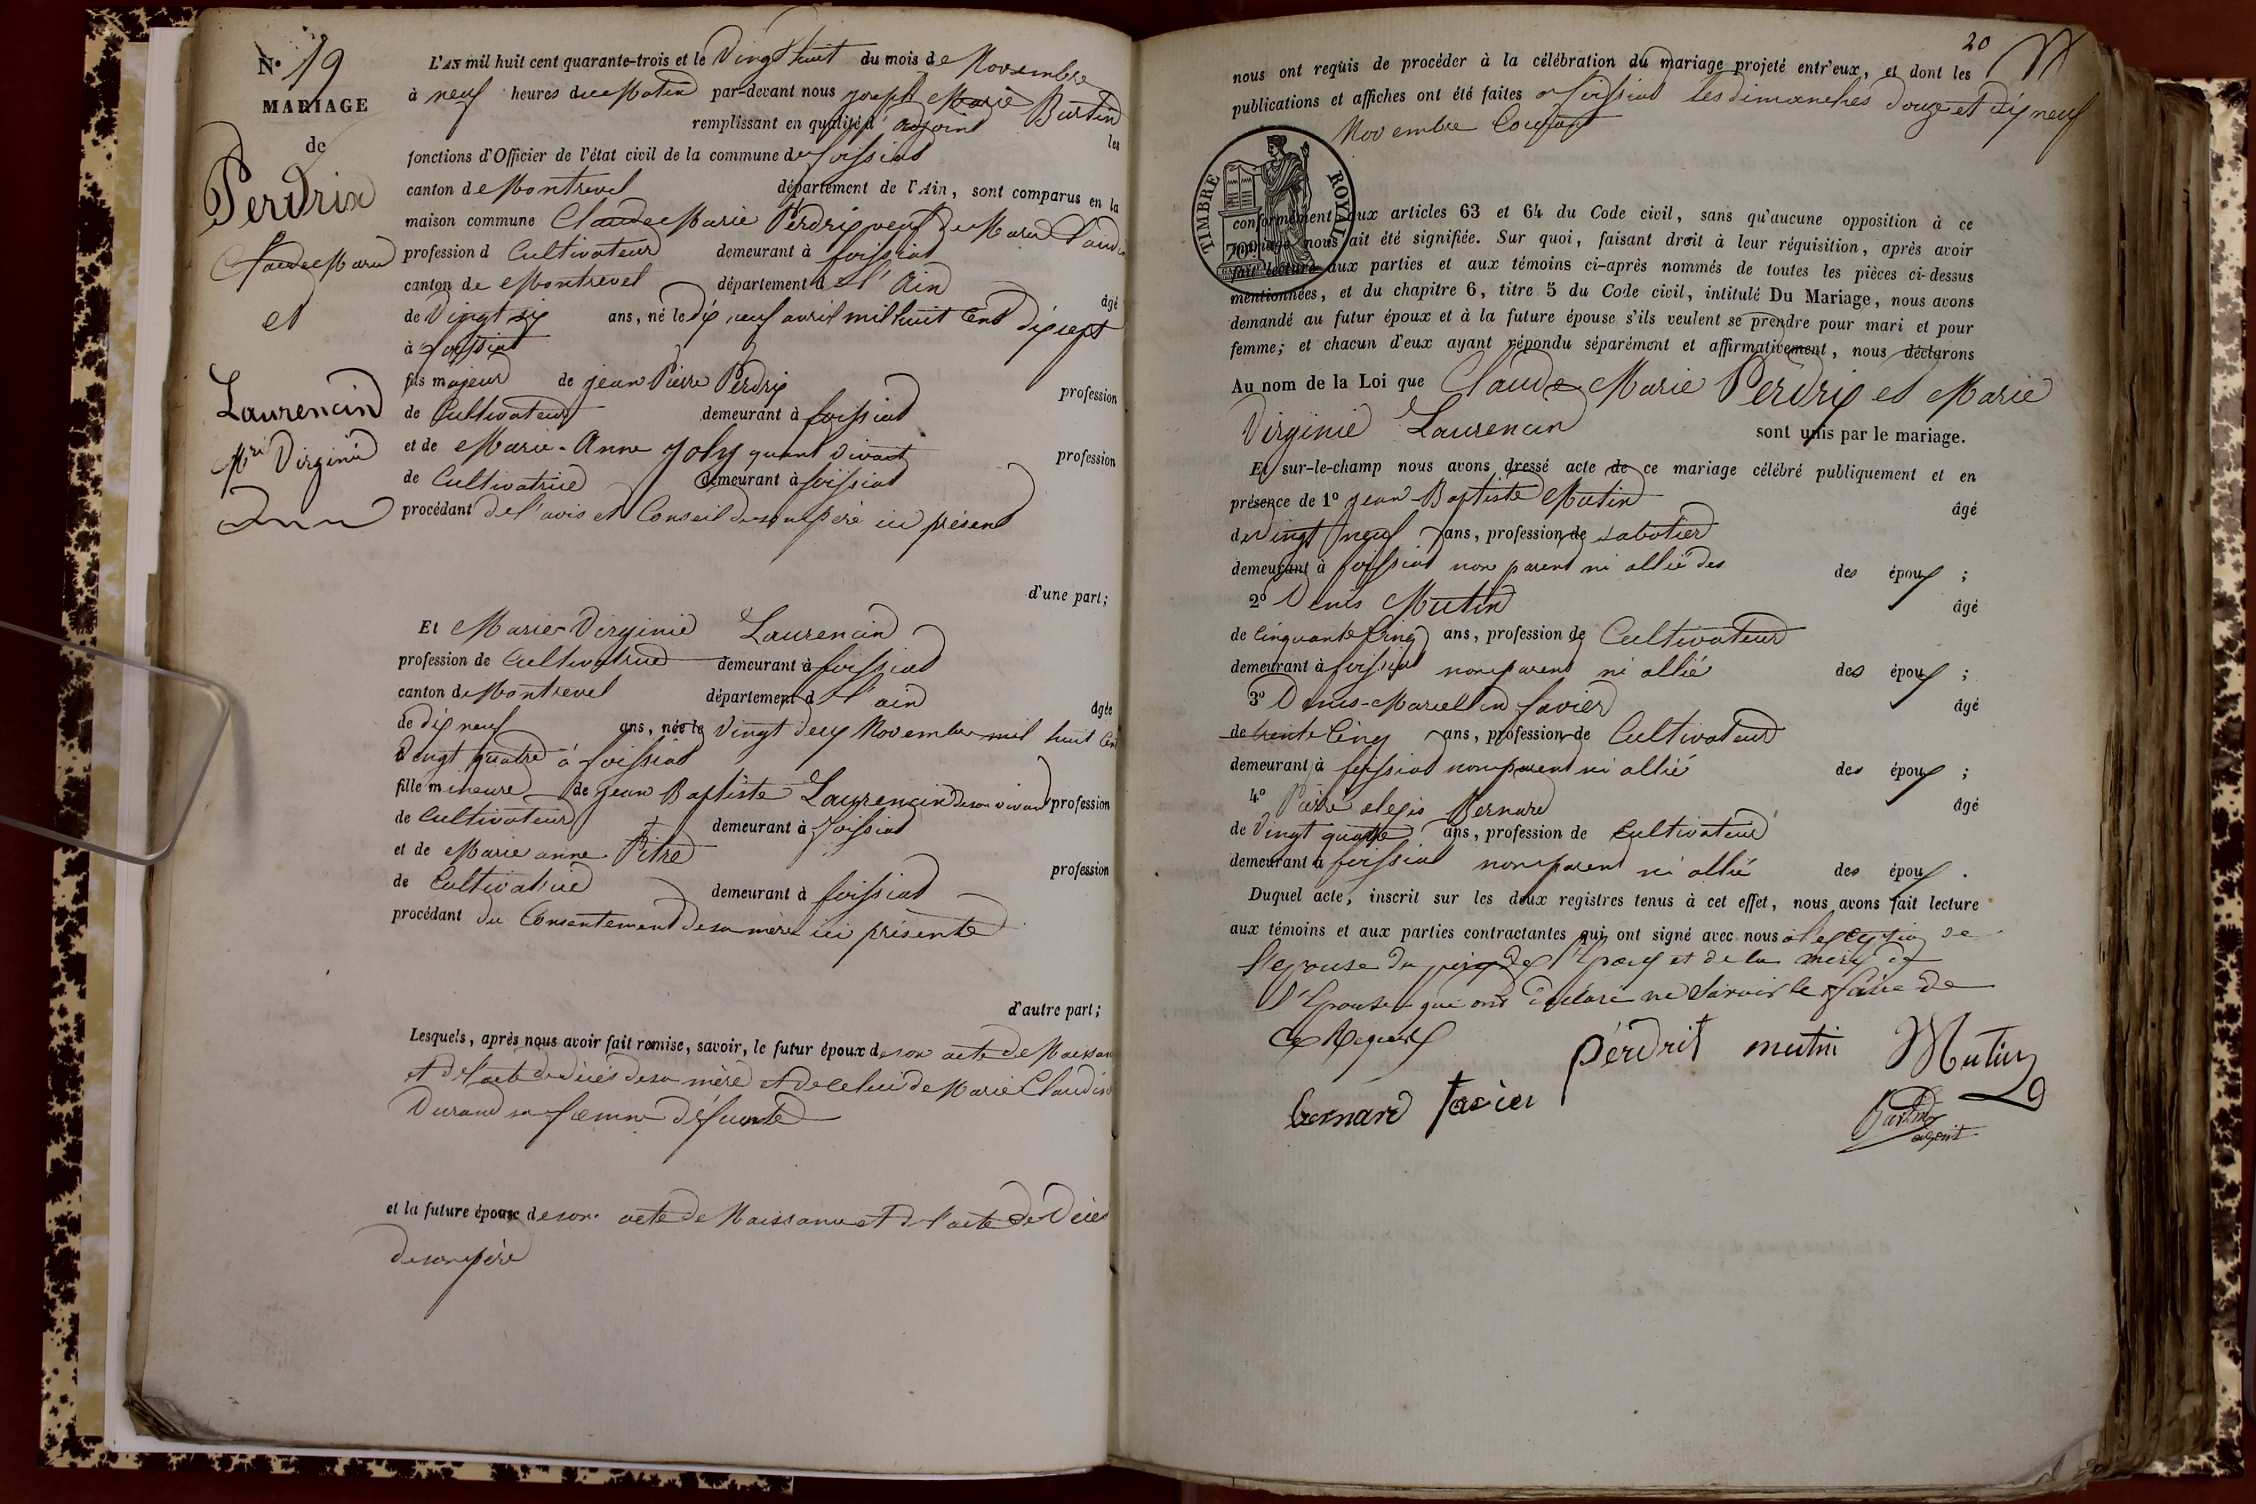 N° 19
MARIAGE
de
Perdrix
Claude Marie
et
Laurencin
Mrie Virginie
L'AN mil huit cent quarante-trois et le Vingt huit du mois de Novembre
à neuf heures du Matin par-devant nous joseph Marie Burtin
remplissant en qualité d'adjoint les
fonctions d'Officier de l'état civil de la commune de foissiat
canton de Montrevel département de l'Ain, sont comparus en la
maison commune Claude Marie Perdrix veuf de Marie Claudine
profession d Cultivateur demeurant à foissiat
canton de Montrevel département de l'Ain âgé
de Vingt six ans, né le dix neuf avril mil huit Cent dix sept
à foissiat
fils majeur de jean Pierre Perdrix profession
de Cultivateur demeurant à foissiat
et de Marie-Anne Joly quand vivait profession
de Cultivatrice demeurant à foissiat
procédant de l'avis et Conseil de son père ici présent
d'une part;
Et Marie Virginie Laurencin
profession de Cultivatrice demeurant à foissiat
canton de Montrevel département d l'ain âgée
de dix neuf ans, née le Vingt deux Novembre mil huit Cent
Vingt quatre à foissiat
fille mineure de jean Baptiste Laurencin de son vivant profession
de Cultivateur demeurant à foissiat
et de Marie anne Pitre profession
de Cultivatrice demeurant à foissiat
procédant du Consentement de sa mère ici présente
d'autre part;
Lesquels, après nous avoir fait remise, savoir, le futur époux de son acte de Naissance
et de l'acte de décès de sa mère et de celui de Marie Claudine
Durand sa femme défunte
et la future épouse de son acte de Naissance et de l'acte de Décès
de son père
20
nous ont requis de procéder à la célébration du mariage projeté entr'eux, et dont les
publications et affiches ont été faites a foissiat les dimanches douze et dix neuf
Novembre Courant
TIMBRE ROYAL
70c
conformément aux articles 63 et 64 du Code civil, sans qu'aucune opposition à ce
mariage nous ait été signifiée. Sur quoi, faisant droit à leur réquisition, après avoir
fait lecture aux parties et aux témoins ci-après nommés de toutes les pièces ci-dessus
mentionnées, et du chapitre 6, titre 5 du Code civil, intitulé Du Mariage, nous avons
demandé au futur époux et à la future épouse s'ils veulent se prendre pour mari et pour
femme; et chacun d'eux ayant répondu séparément et affirmativement, nous déclarons
Au nom de la Loi que Claude Marie Perdrix et Marie
Virginie Laurencin sont unis par le mariage.
Et sur-le-champ nous avons dressé acte de ce mariage célébré publiquement et en
présence de 1° jean-Baptiste Mutin âgé
de Vingt neuf ans, profession de sabotier
demeurant à foissiat non parent ni allié des des époux ;
2° Denis Mutin âgé
de Cinquante Cinq ans, profession de Cultivateur
demeurant à foissiat non parent ni allié des époux ;
3° Denis-Marcellin favier âgé
de trente Cinq ans, profession de Cultivateur
demeurant à foissiat non parent ni allié des époux ;
4° Pierre alexis Bernard âgé
de Vingt quatre ans, profession de Cultivateur
demeurant à foissiat non parent ni allié des époux .
Duquel acte, inscrit sur les deux registres tenus à cet effet, nous avons fait lecture
aux témoins et aux parties contractantes qui ont signé avec nous à l'exception de
l'épouse du père de l'époux et de la mère de
l'Epouse que ont déclaré ne Savoir le faire de
Ce Requis
perdrit mutin Mutin
bernard favier
Burtin
adjoint